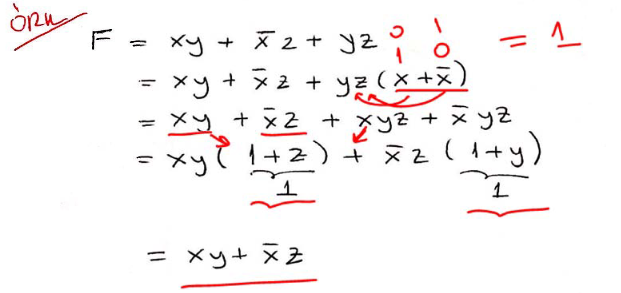 ÖRN
F = xy + x̄z + yz 0 1 = 1
1 0
= xy + x̄z + yz(x + x̄)
= xy + x̄z + xyz + x̄yz
= xy(1+z) + x̄z(1+y)
1 1
= xy + x̄z